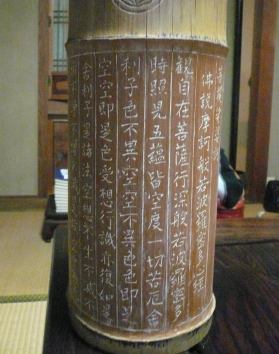 佛説摩訶般若波羅蜜多心経
観自在菩薩行深般若波羅蜜多
時照見五蘊皆空度一切苦厄舎
利子色不異空空不異色色即是
空空即是色受想行識亦復如是
舎利子是諸法空相不生不滅不